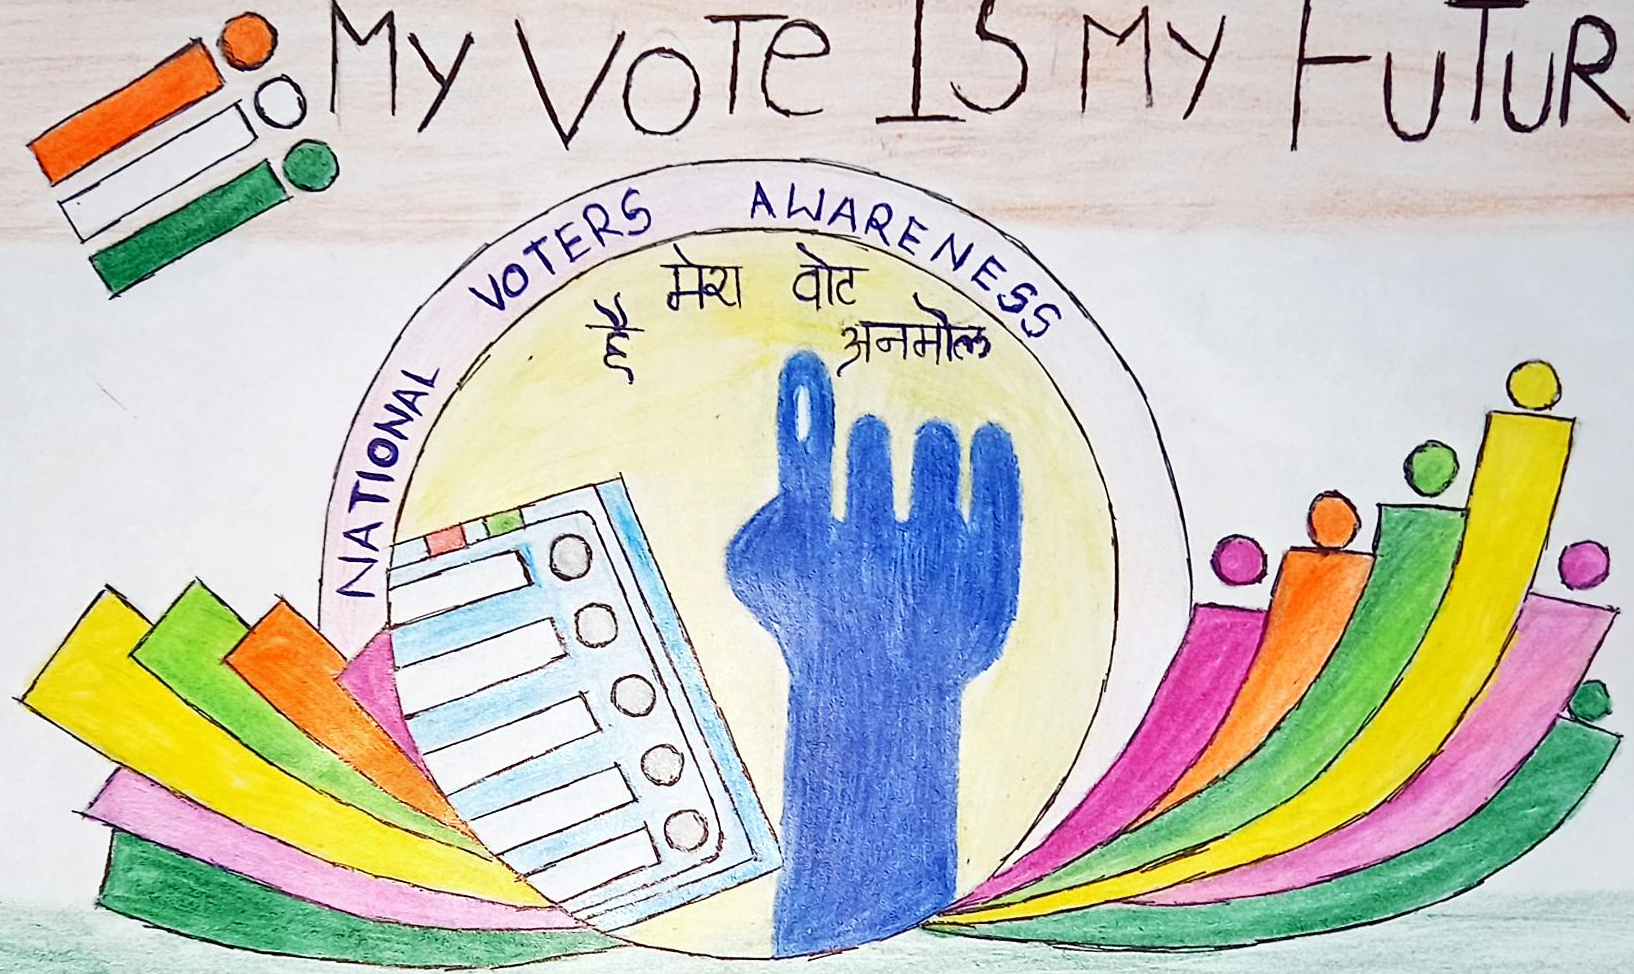 MY VOTE IS MY FUTUR
NATIONAL VOTERS AWARENESS
मेरा वोट
है अनमोल